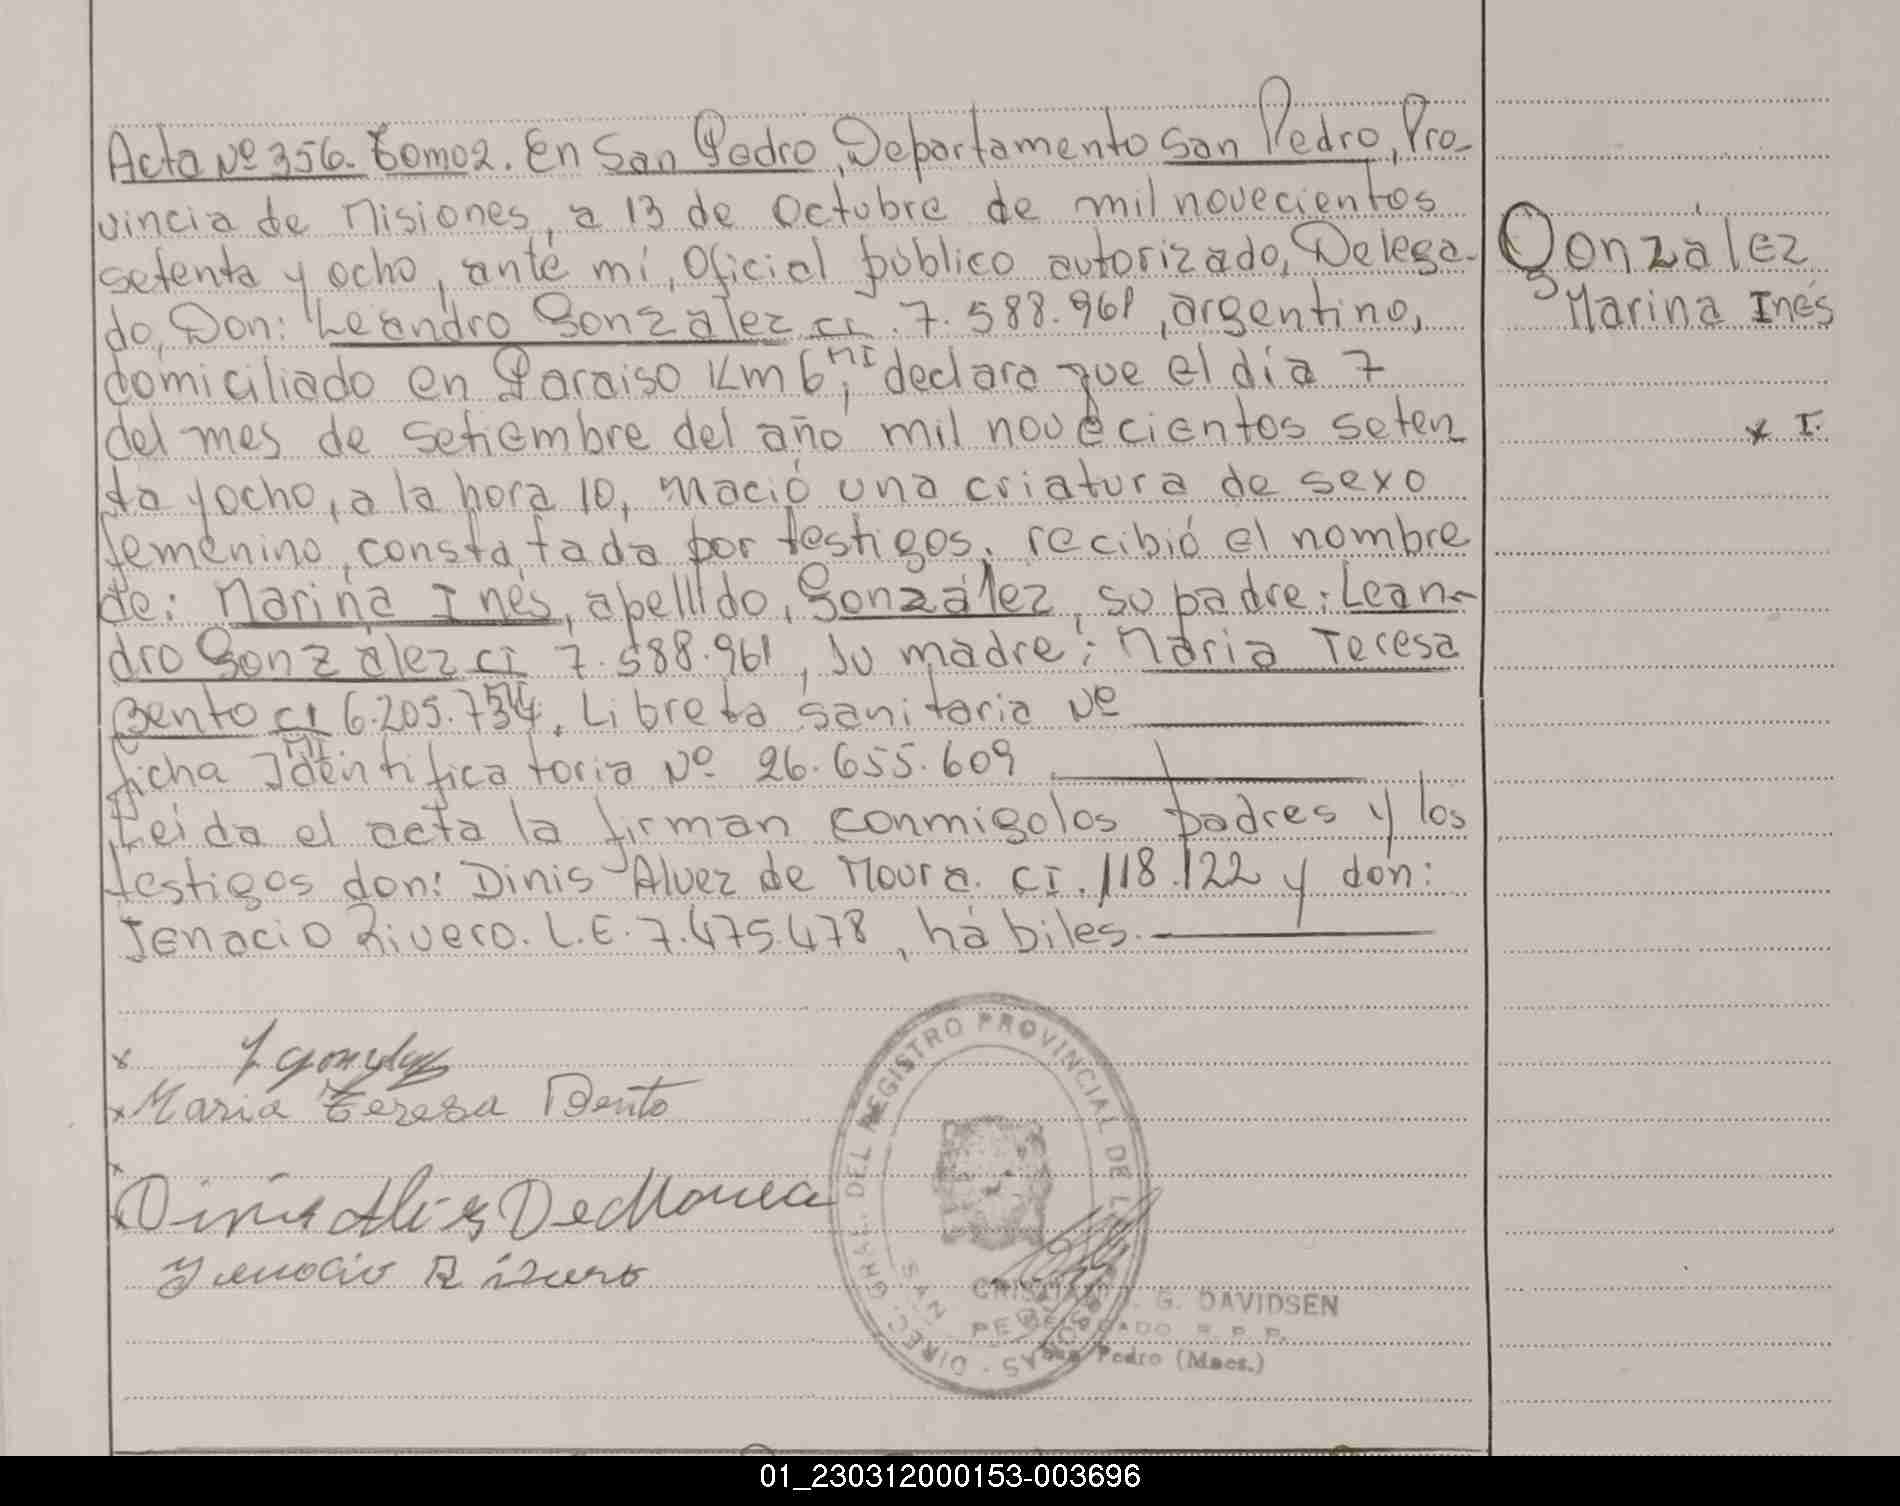 Acta Nº 356. Tomo 2. En San Pedro, Departamento San Pedro, Pro-
vincia de Misiones, a 13 de Octubre de mil novecientos
setenta y ocho, ante mí, Oficial público autorizado, Delega-
do, Don: Leandro González CI. 7.588.961, argentino,
domiciliado en Paraiso Km 6, MI declara que el día 7
del mes de Setiembre del año mil novecientos seten
ta y ocho, a la hora 10, nació una criatura de sexo
femenino, constatada por testigos, recibió el nombre
de: Marina Inés, apellido, González, su padre: Lean-
dro González CI 7.588.961, su madre: Maria Teresa
Bento CI 6.205.734. Libreta sanitaria Nº
ficha Identificatoria Nº 26.655.609
Leida el acta la firman conmigo los padres y los
testigos don: Dinis Alvez de Moura. CI. 118.122 y don:
Ignacio Rivero. L.E. 7.475.478, hábiles.
González
Marina Inés
x I.
x
x Maria Teresa Bento
x
Dinis Alves De Moura
Ignacio Rivero
DIREC. GRAL. DEL REGISTRO PROVINCIAL DE LAS
SAN PEDRO
CRISTIAN G. DAVIDSEN
DELEGADO R. P. P.
San Pedro (Mnes.)
01_230312000153-003696